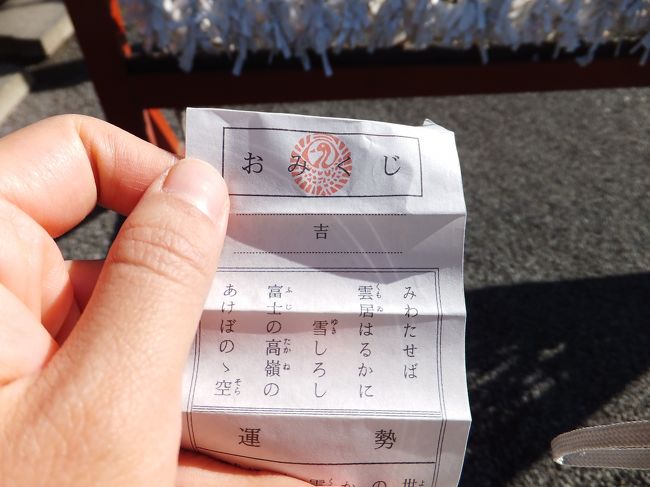 おみくじ
吉
みわたせば
雲居はるかに
雪しろし
富士の高嶺の
あけぼのゝ空
運勢
世
の
か
雲